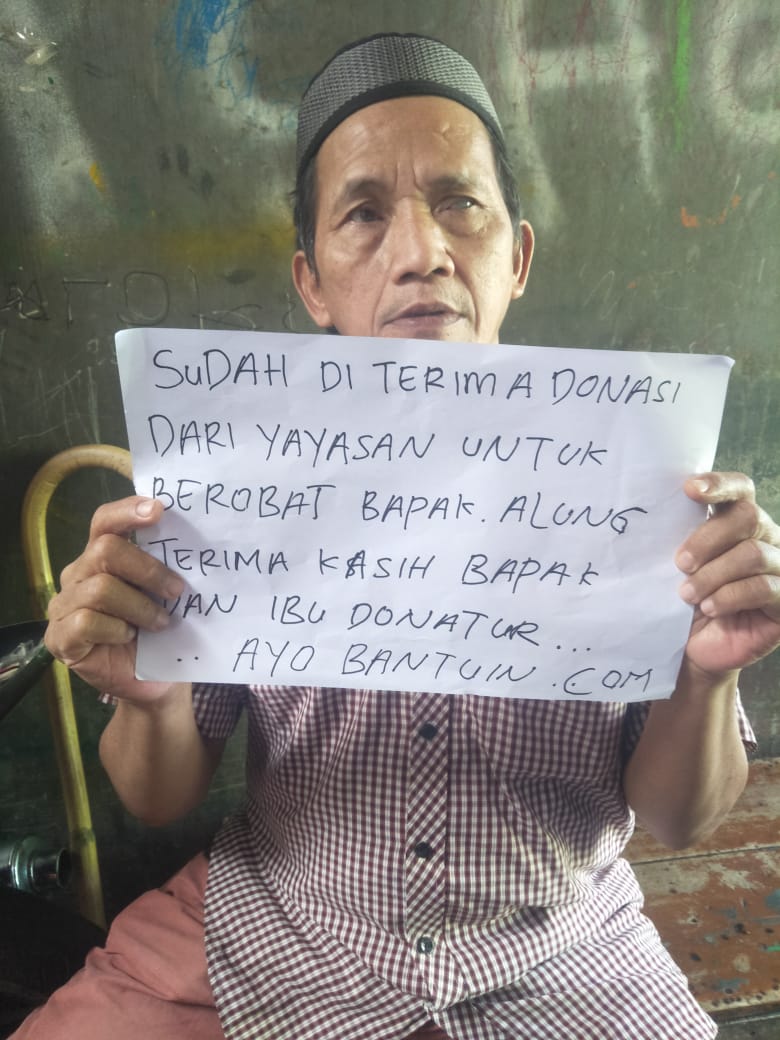 SuDAH DI TERIMA DONASI
DARI YAYASAN UNTUK
BEROBAT BAPAK. ALUNG
TERIMA KASIH BAPAK
DAN IBU DONATUR...
.. AYO BANTUIN.COM